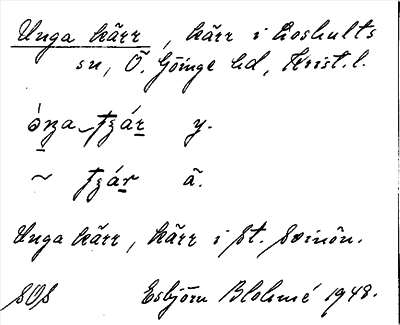 Unga kärr, kärr i Loshults
sn, Ö. Göinge hd, Krist. l.
y.
~ ä.
Unga kärr, kärr i St. Svinön.
SOS Esbjörn Blohmé 1948.